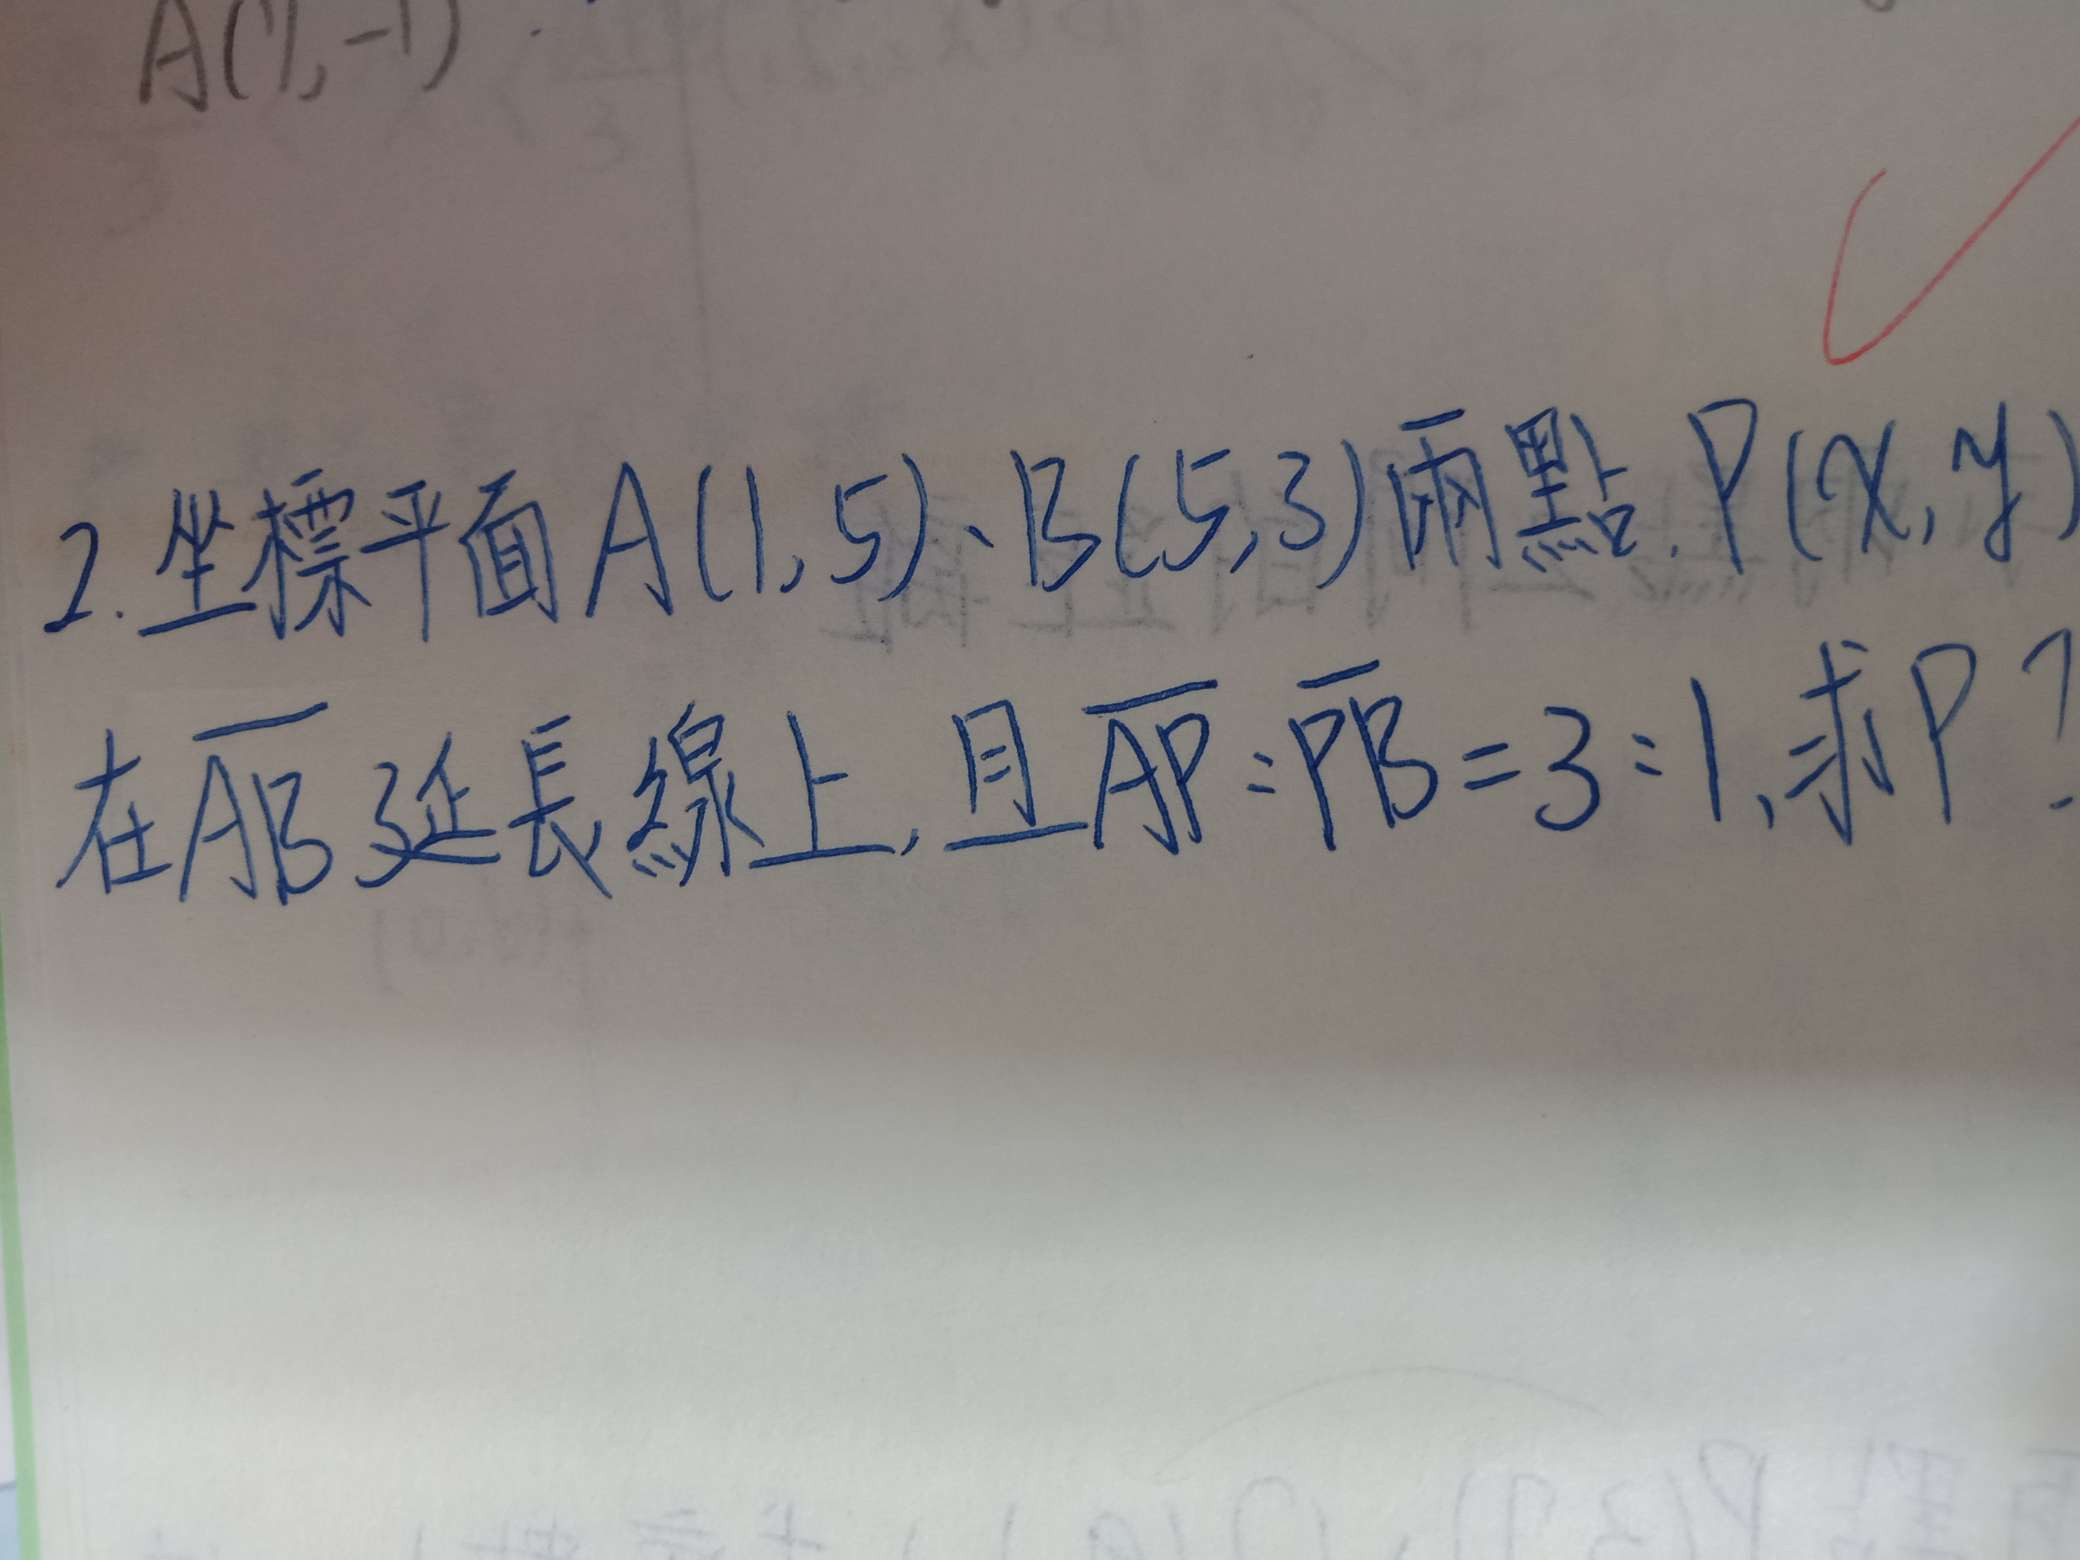 A(1,-1)
2. 坐標平面A(1,5)、B(5,3)兩點, P(x,y)
在A̅B̅延長線上, 且A̅P̅:P̅B̅=3:1, 求P?